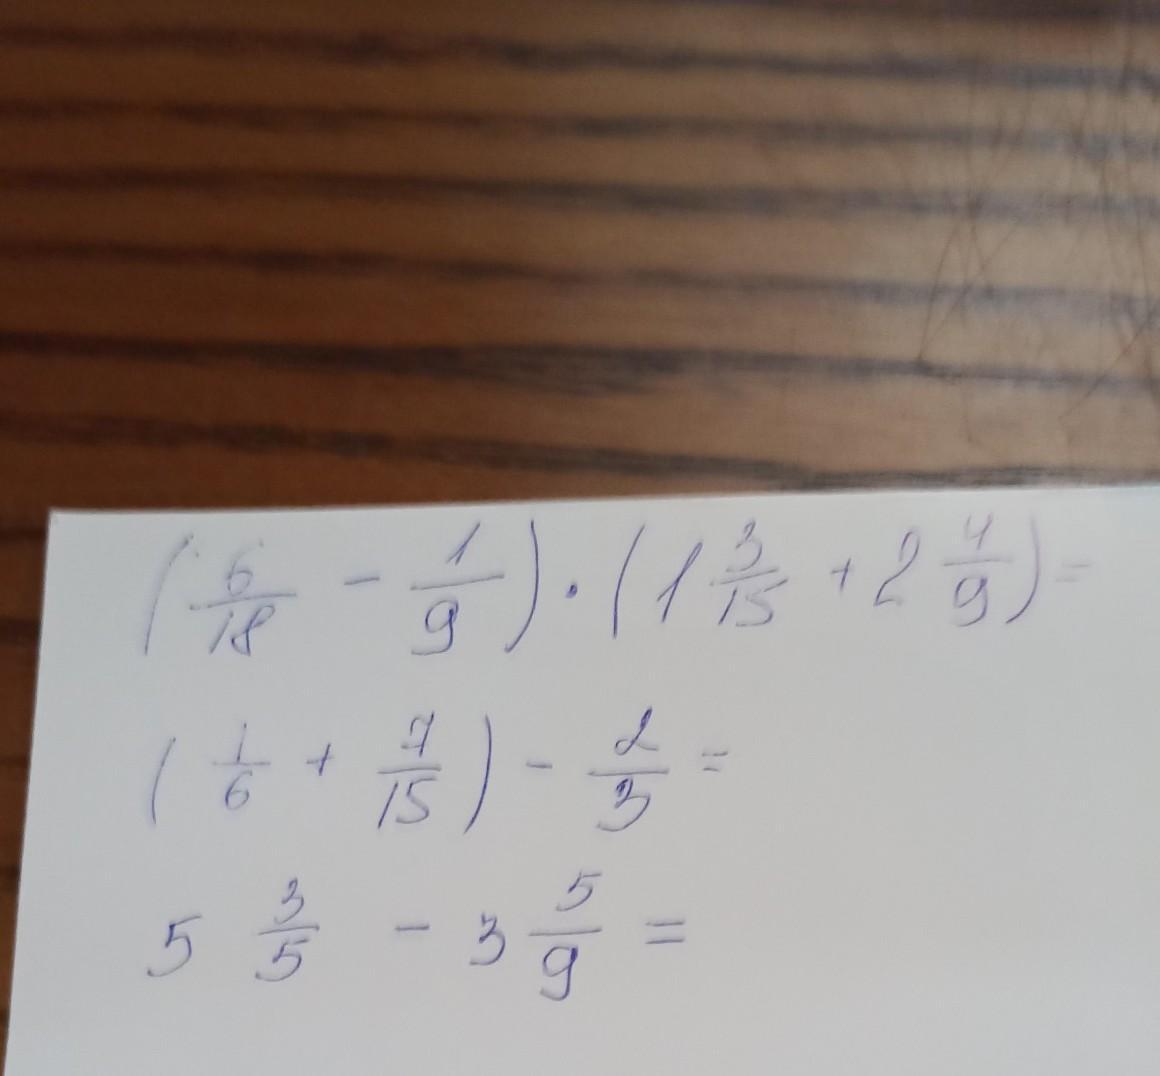 (6/18 - 1/9) · (1 3/15 + 2 4/9) =
(1/6 + 7/15) - 2/3 =
5 3/5 - 3 5/9 =